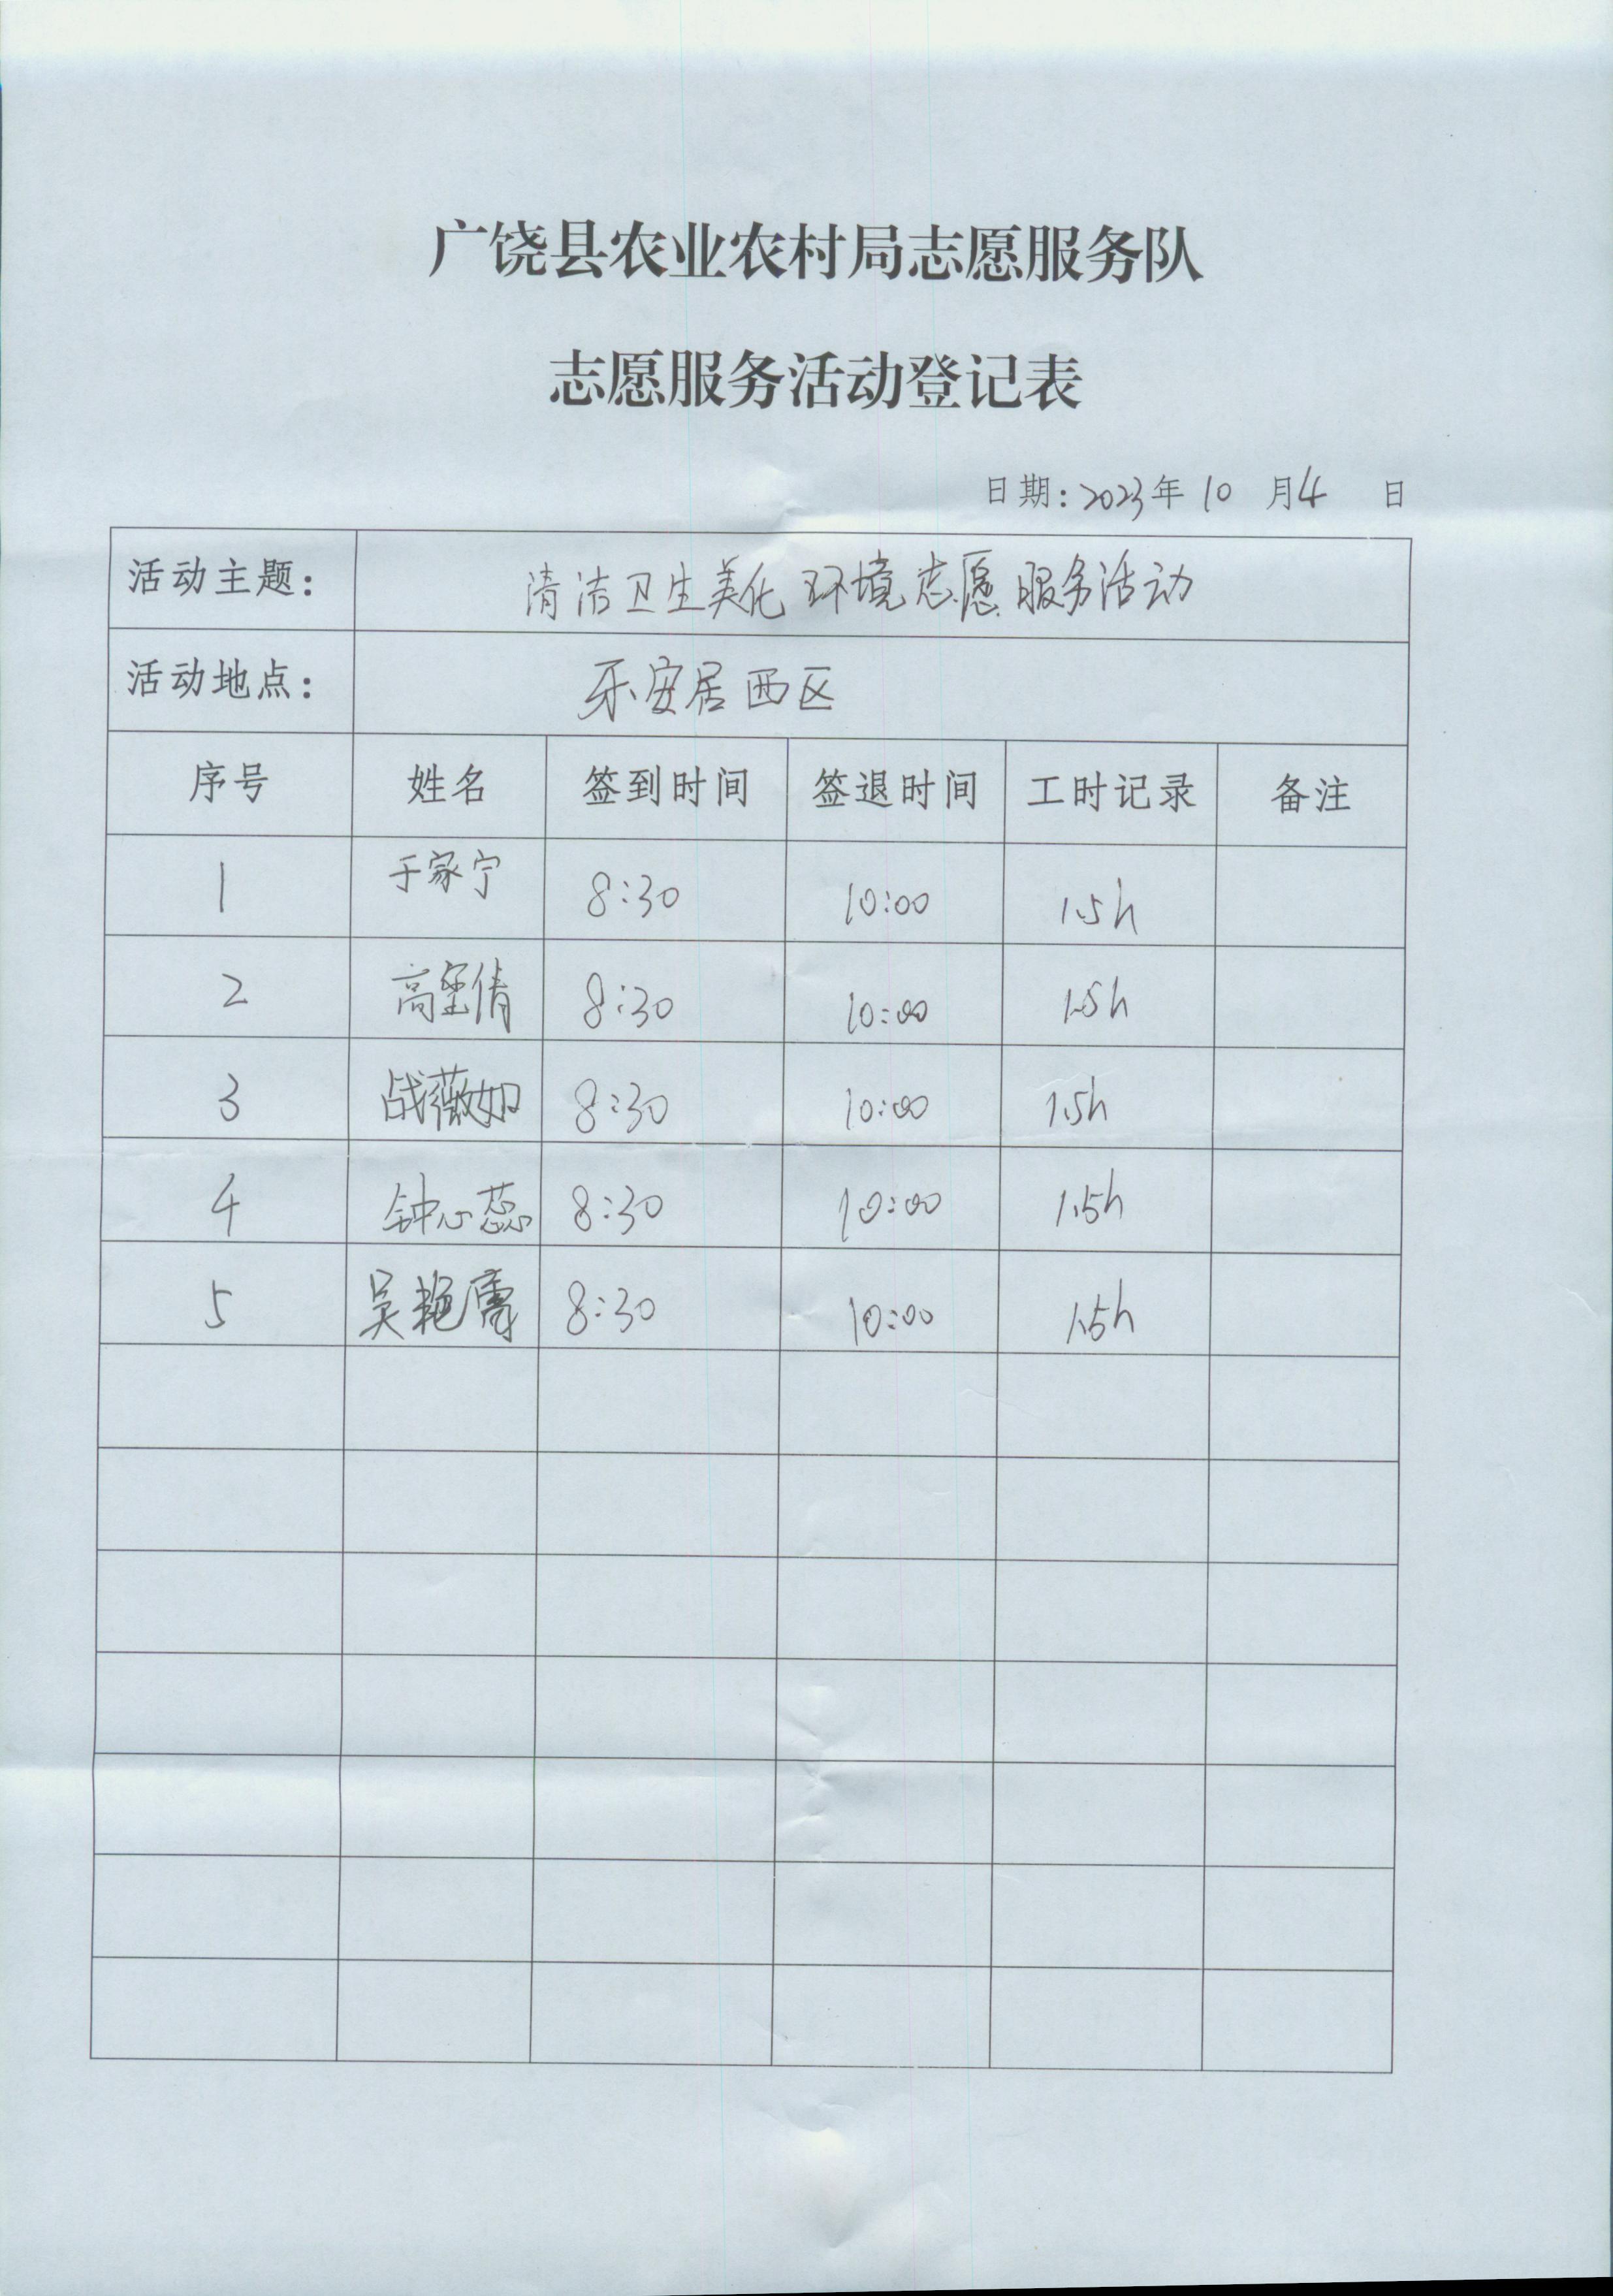 广饶县农业农村局志愿服务队
志愿服务活动登记表
日期：2023年 10 月 4 日
活动主题： 清洁卫生美化环境志愿服务活动
活动地点： 乐安居西区
序号 姓名 签到时间 签退时间 工时记录 备注
1 于家宁 8:30 10:00 1.5h
2 高 倩 8:30 10:00 1.5h
3 战薇如 8:30 10:00 1.5h
4 钟心蕊 8:30 10:00 1.5h
5 吴艳 8:30 10:00 1.5h